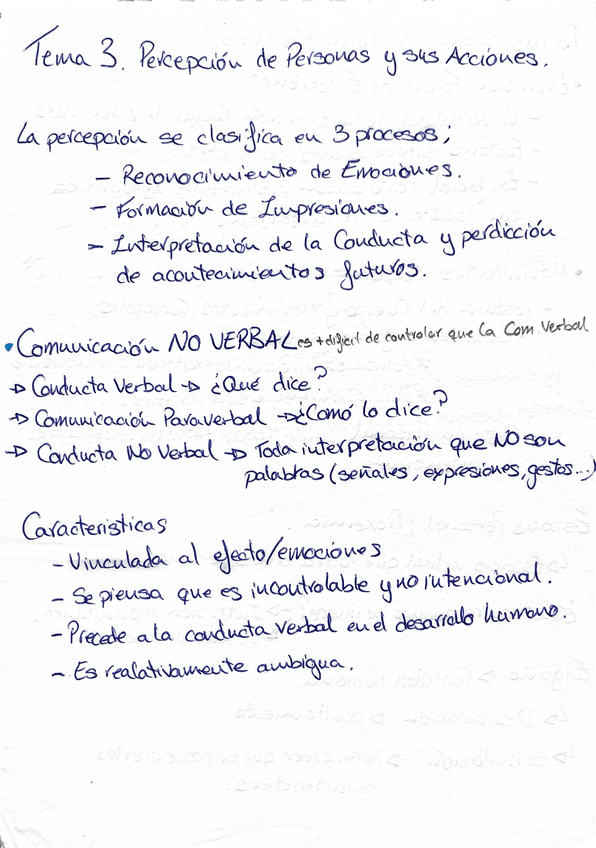 Tema 3. Percepción de Personas y sus Acciones.
La percepción se clasifica en 3 procesos;
- Reconocimiento de Emociones.
- Formación de Impresiones.
- Interpretación de la Conducta y perdicción
de acontecimientos futuros.
• Comunicación NO VERBAL es + difícil de controlar que la Com Verbal
→ Conducta Verbal → ¿Qué dice?
→ Comunicación Paraverbal → ¿Comó lo dice?
→ Conducta No Verbal → Toda interpretación que NO son
palabras (señales, expresiones, gestos...)
Caracteristicas
- Vinculada al efecto/emociones
- Se piensa que es incontrolable y no intencional.
- Precede a la conducta verbal en el desarrollo humano.
- Es realativamente ambigua.